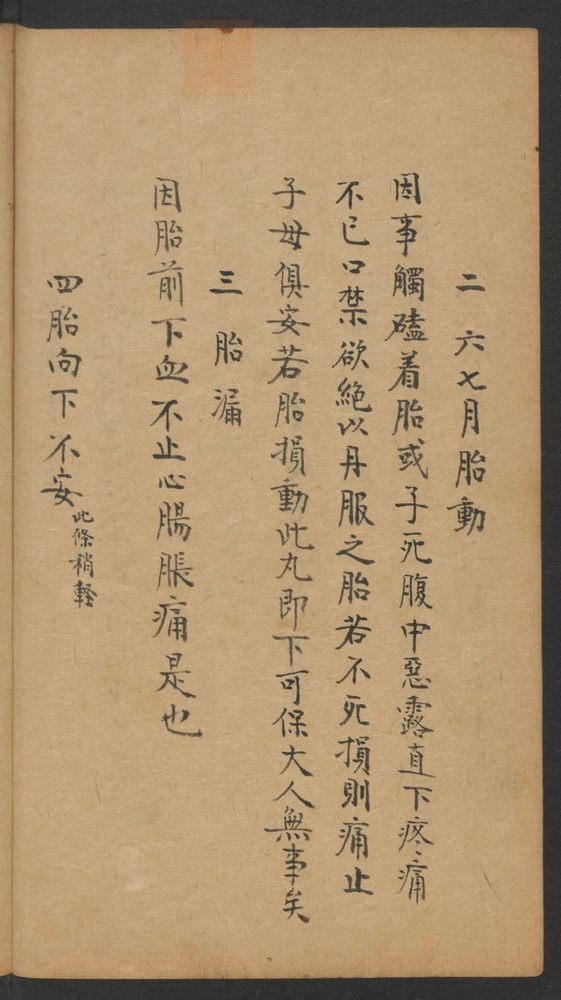 二 六七月胎動
因事觸磕着胎或子死腹中惡露直下疼痛
不已口禁欲絕以丹服之胎若不死損則痛止
子母俱安若胎損動此丸即下可保大人無事矣
三 胎漏
因胎前下血不止心腸脹痛是也
四胎向下不安此條稍輕